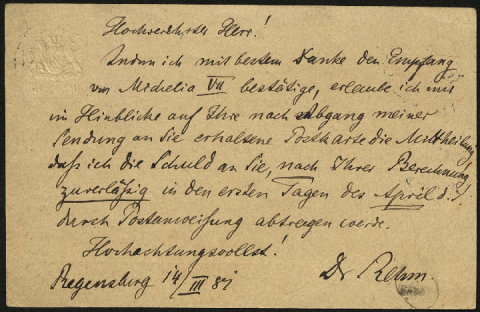 Hochverehrter Herr!
Indem ich mit bestem Danke den Empfang
von Michelia VII bestätige, erlaube ich mir
im Hinblicke auf Ihre nach Abgang meiner
Sendung an Sie erhaltene Postkarte die Mittheilung,
daß ich die Schuld an Sie, nach Ihrer Berechnung
zuverläßig in den ersten Tagen des April d. J.
durch Postanweisung abtragen werde.
Hochachtungsvollst!
Regensburg 14/III 81 Dr Rehm.